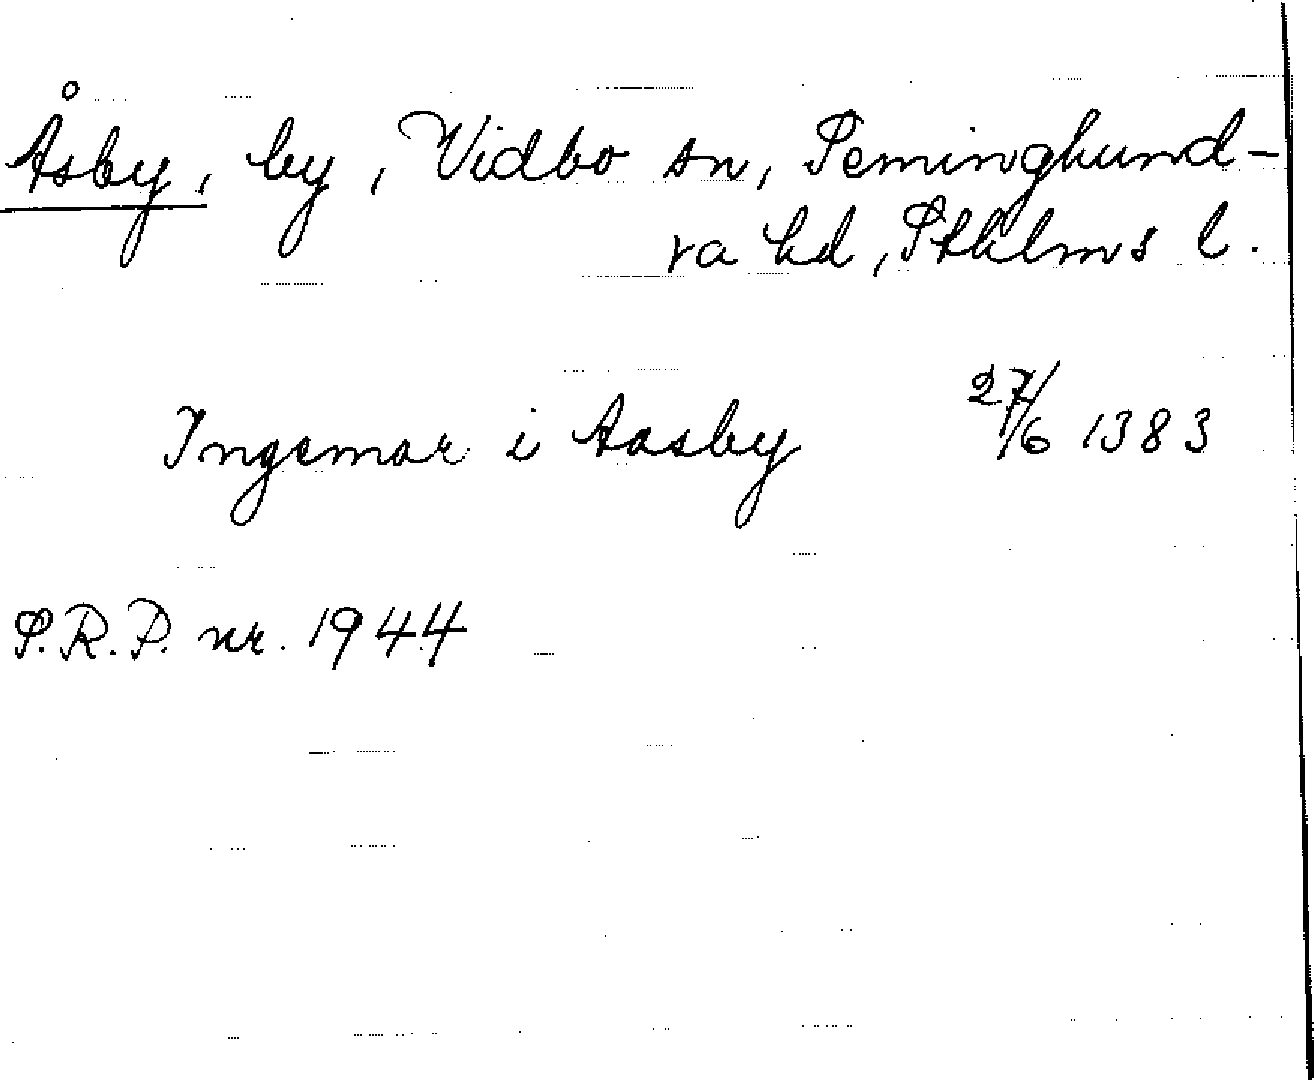 Åsby, by, Vidbo sn, Seminghund-
ra hd, Sthlms l.
Ingemar i Aasby 27/6 1383
S.R.P. nr. 1944